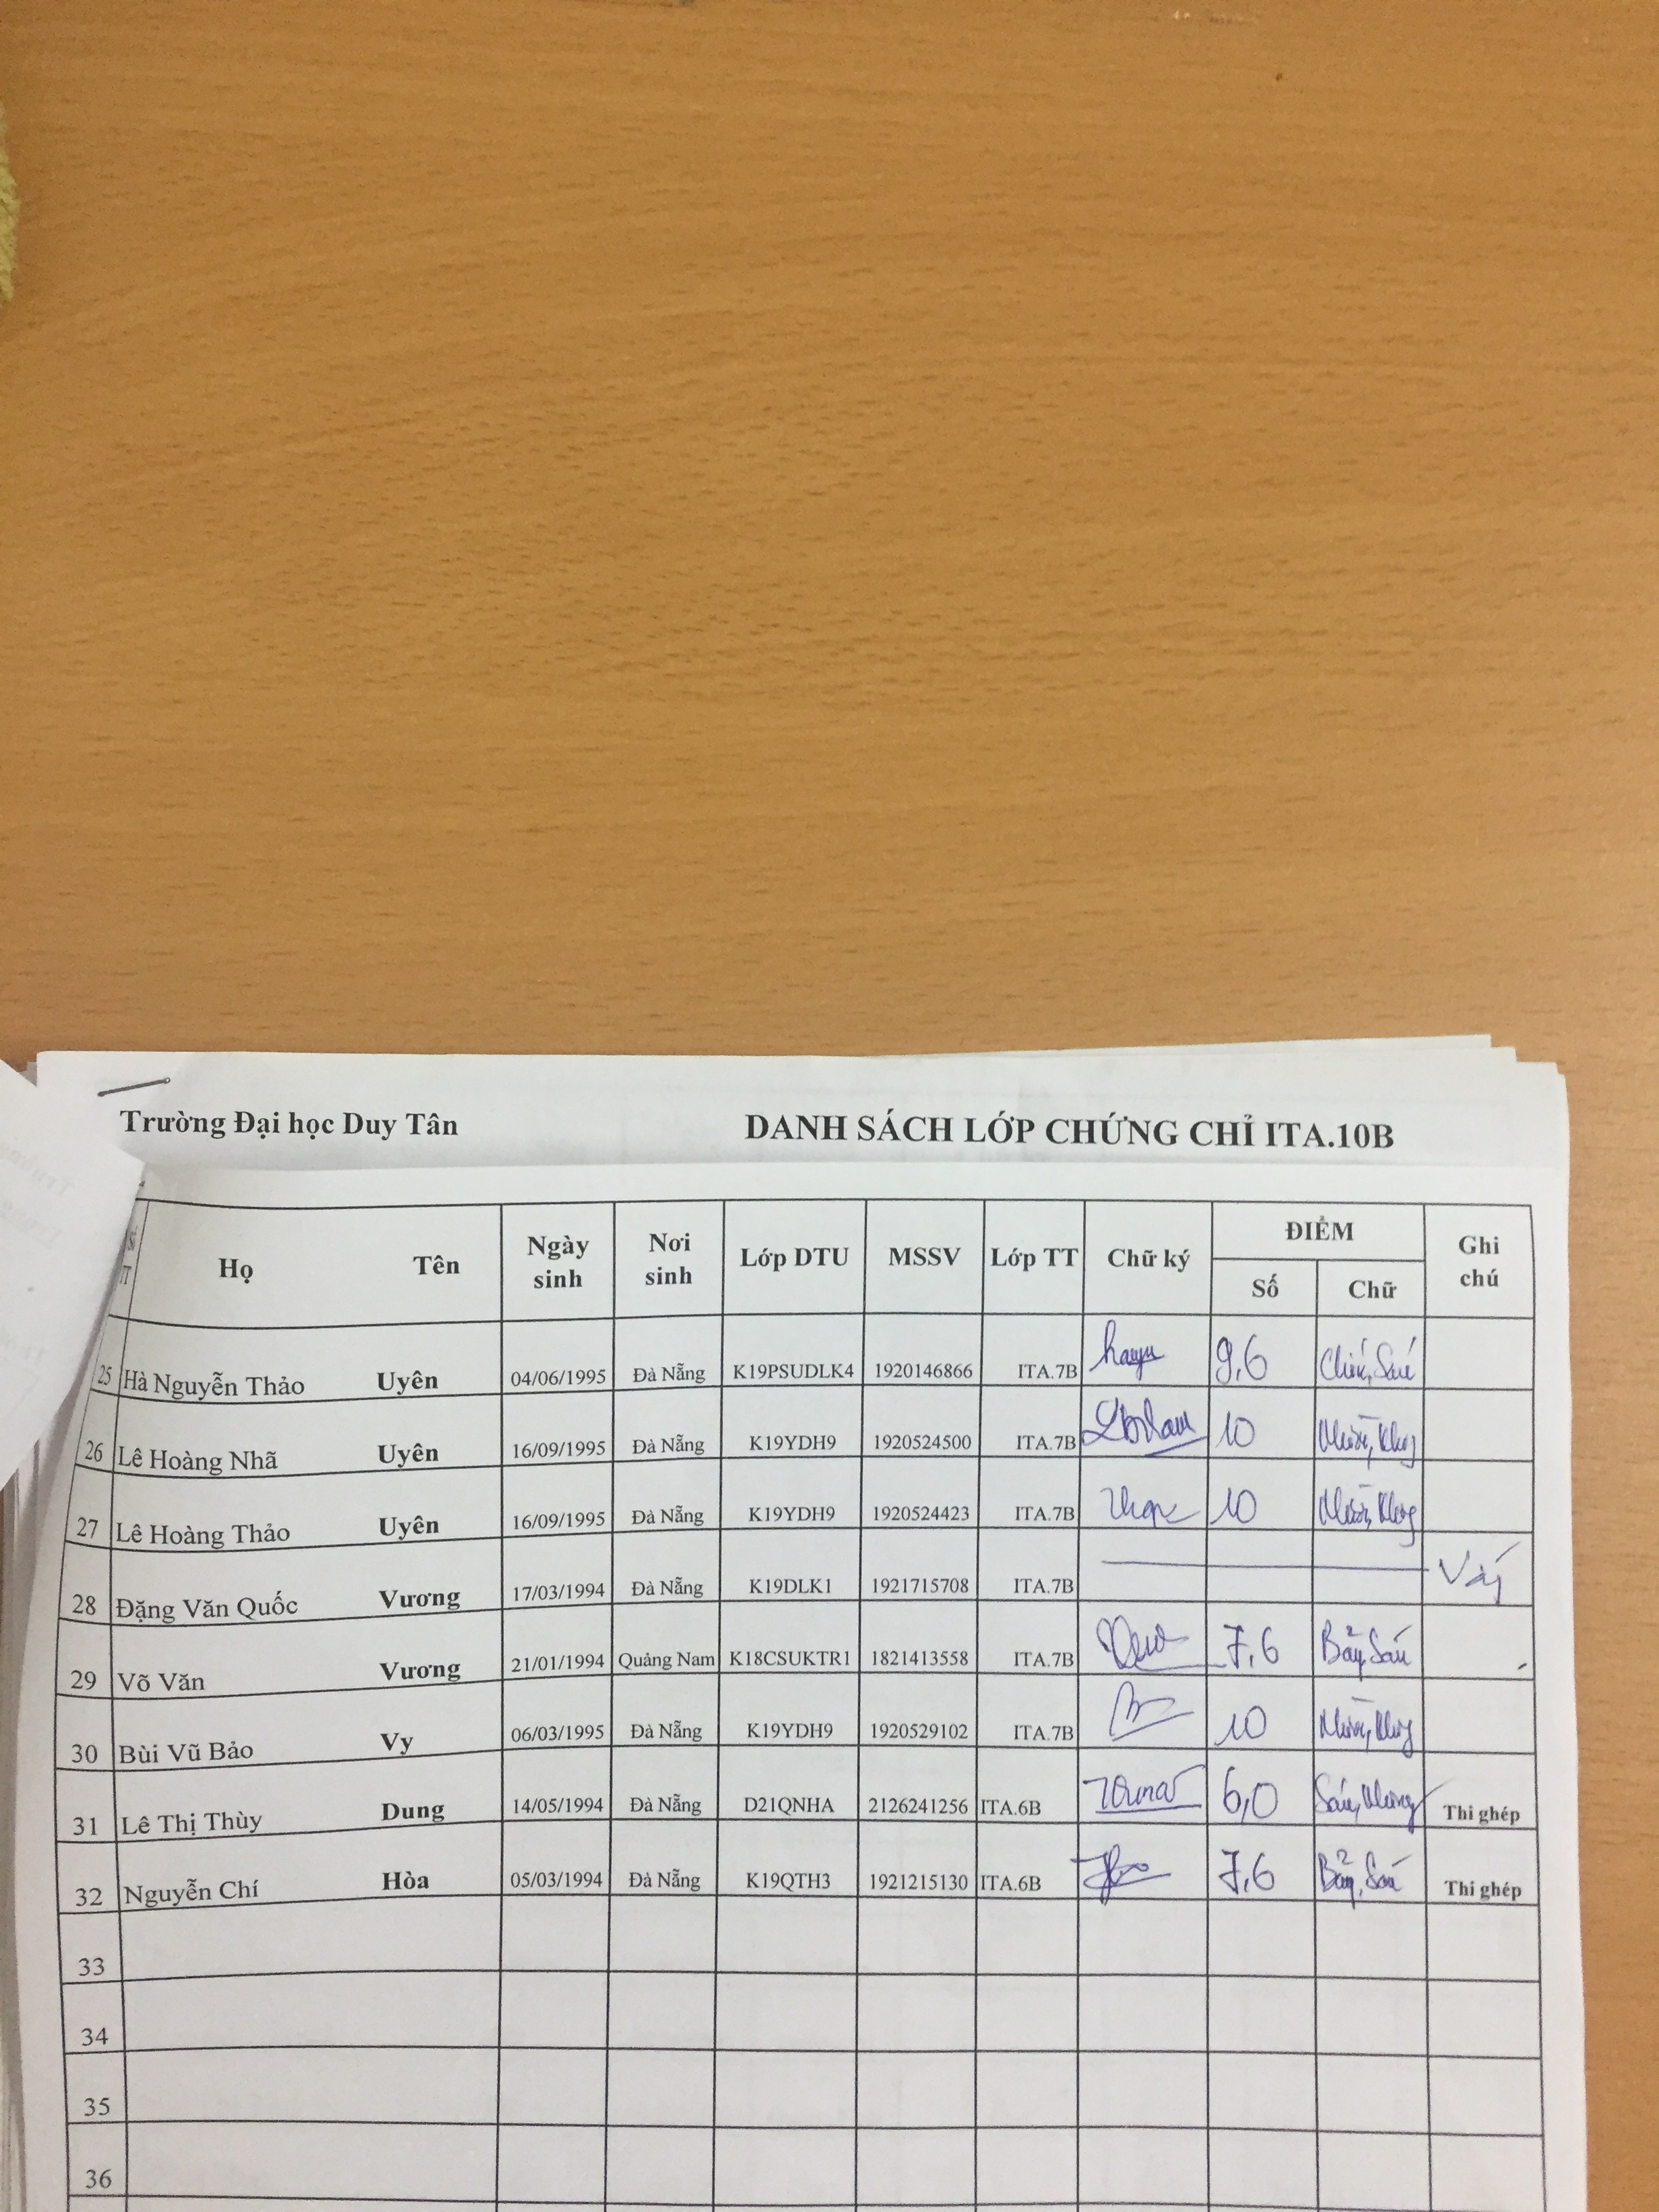 Trường Đại học Duy Tân DANH SÁCH LỚP CHỨNG CHỈ ITA.10B
Họ Tên Ngày sinh Nơi sinh Lớp DTU MSSV Lớp TT Chữ ký ĐIỂM Số Chữ Ghi chú
25 Hà Nguyễn Thảo Uyên 04/06/1995 Đà Nẵng K19PSUDLK4 1920146866 ITA.7B 9,6 Chín, Sáu
26 Lê Hoàng Nhã Uyên 16/09/1995 Đà Nẵng K19YDH9 1920524500 ITA.7B 10 Mười, Không
27 Lê Hoàng Thảo Uyên 16/09/1995 Đà Nẵng K19YDH9 1920524423 ITA.7B 10 Mười, Không
28 Đặng Văn Quốc Vương 17/03/1994 Đà Nẵng K19DLK1 1921715708 ITA.7B Vắng
29 Võ Văn Vương 21/01/1994 Quảng Nam K18CSUKTR1 1821413558 ITA.7B 7,6 Bảy, Sáu
30 Bùi Vũ Bảo Vy 06/03/1995 Đà Nẵng K19YDH9 1920529102 ITA.7B 10 Mười, Không
31 Lê Thị Thùy Dung 14/05/1994 Đà Nẵng D21QNHA 2126241256 ITA.6B 6,0 Sáu, Không Thi ghép
32 Nguyễn Chí Hòa 05/03/1994 Đà Nẵng K19QTH3 1921215130 ITA.6B 7,6 Bảy, Sáu Thi ghép
33
34
35
36